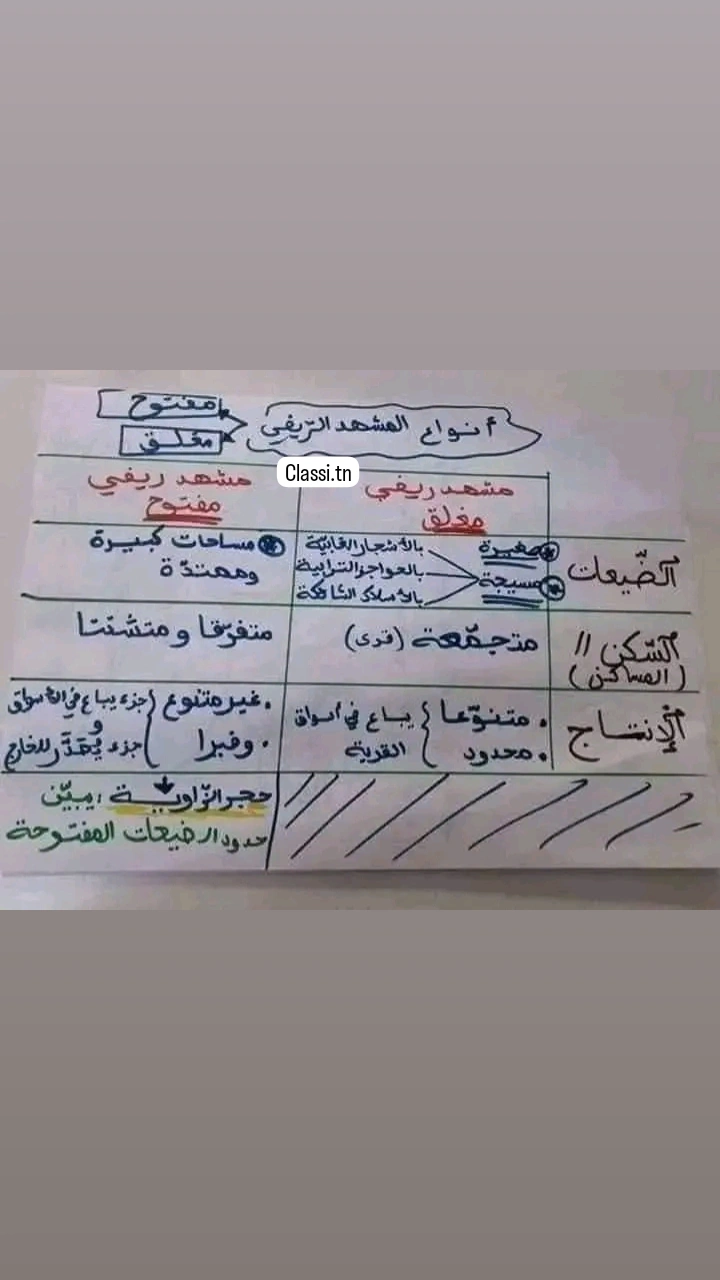 أنواع المشهد الريفي
مفتوح
مغلق
Classi.tn
مشهد ريفي
مغلق
مشهد ريفي
مفتوح
الضّيعات
صغيرة
مسيجة
بالأشجار الغابيّة
بالحواجز الترابية
بالأسلاك الشائكة
مساحات كبيرة
وممتدّة
السّكن //
(المساكن)
متجمّعة (قرى)
متفرّقا ومتشتتا
الإنتاج
• متنوّعا
• محدود
يباع في أسواق
القرية
• غير متنوع
• وفيرا
جزء يباع في الأسواق
و
جزء يُصَدَّر للخارج
حجر الزّاوية: يبيّن
حدود الضيعات المفتوحة